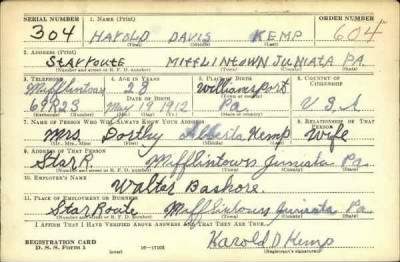 SERIAL NUMBER 1. NAME (Print) ORDER NUMBER
304 HAROLD DAVIS KEMP 604
(First) (Middle) (Last)
2. ADDRESS (Print)
STAR ROUTE MIFFLINTOWN JUNIATA PA.
(Number and street or R. F. D. number) (Town) (County) (State)
3. TELEPHONE 4. AGE IN YEARS 5. PLACE OF BIRTH 6. COUNTRY OF CITIZENSHIP
Mifflintown 28 Williamsport
DATE OF BIRTH
69R23 May 19 1912 Pa. U.S.A
7. NAME OF PERSON WHO WILL ALWAYS KNOW YOUR ADDRESS 8. RELATIONSHIP OF THAT PERSON
Mrs. Dorthy Alberta Kemp Wife
9. ADDRESS OF THAT PERSON
Star R. Mifflintown Juniata Pa.
(Number and street or R. F. D. number) (Town) (County) (State)
10. EMPLOYER'S NAME
Walter Bashore.
11. PLACE OF EMPLOYMENT OR BUSINESS
Star Route Mifflintown Juniata Pa.
(Number and street or R. F. D. number) (Town) (County) (State)
I AFFIRM THAT I HAVE VERIFIED ABOVE ANSWERS AND THAT THEY ARE TRUE.
REGISTRATION CARD
D. S. S. Form 1 (over) 16—17105 Harold D Kemp
(Registrant's signature)